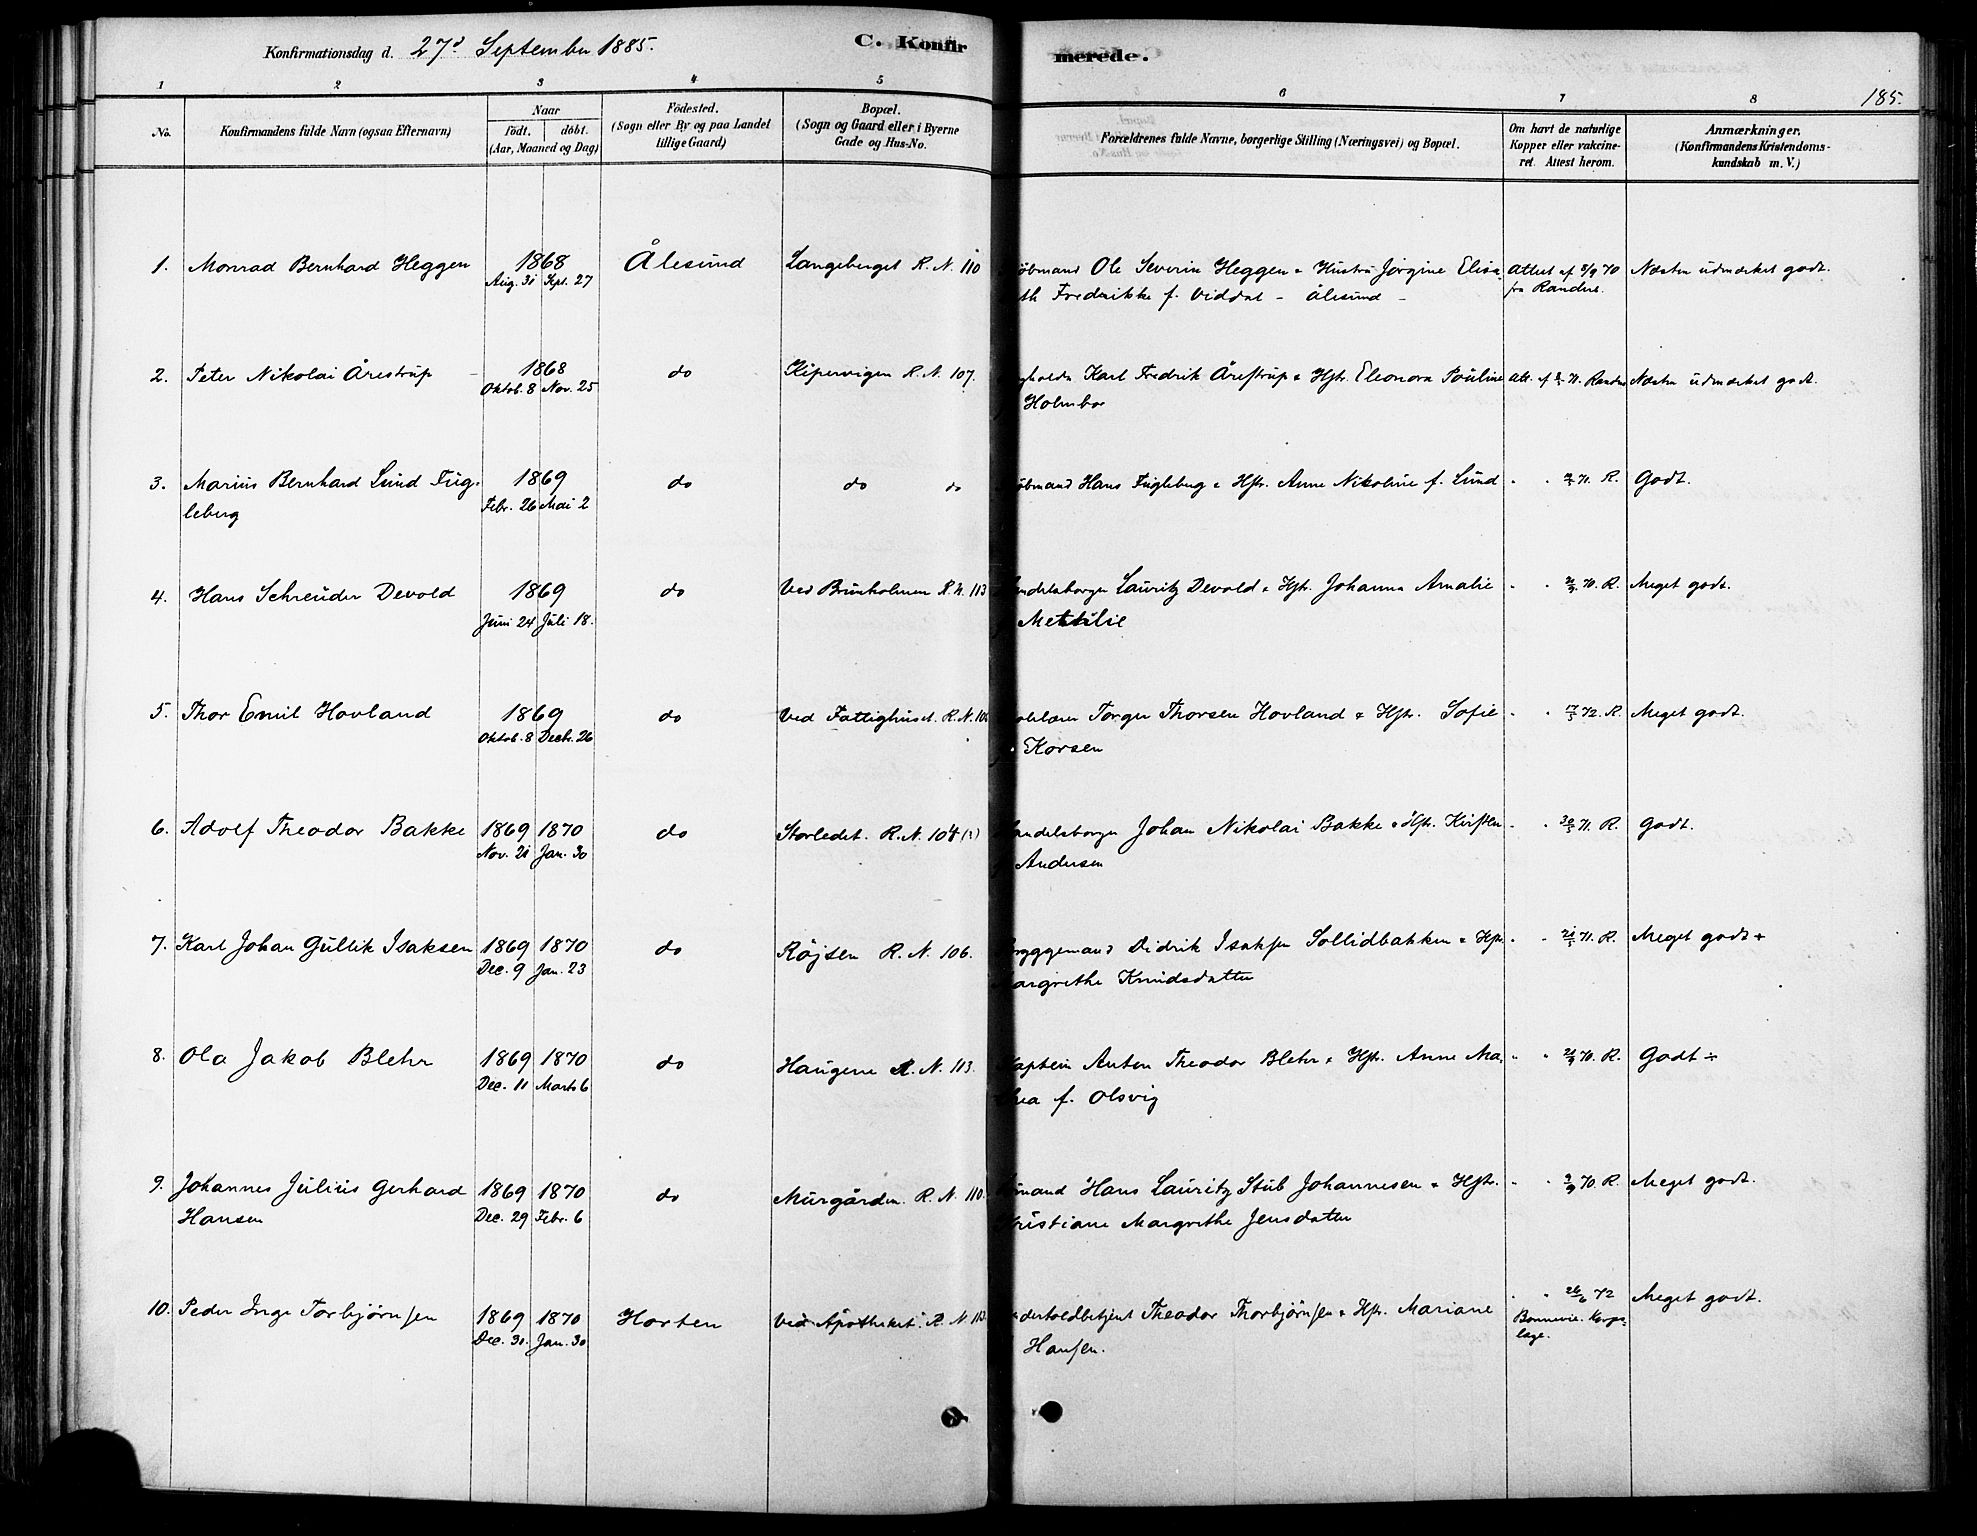 Konfirmationsdag d. 27de September 1885.
C. Konfirmerede.
185.
1 2 3 4 5 6 7 8
No.
Konfirmandens fulde Navn (ogsaa Efternavn)
Naar
födt. döbt.
(Aar, Maaned og Dag)
Födested.
(Sogn eller By og paa Landet
tillige Gaard)
Bopæl.
(Sogn og Gaard eller i Byerne
Gade og Hus-No.
Forældrenes fulde Navne, borgerlige Stilling (Næringsvei) og Bopæl.
Om havt de naturlige
Kopper eller vakcine-
ret. Attest herom.
Anmærkninger.
(Konfirmandens Kristendoms-
kundskab m. V.)
1. Monrad Bernhard Heggen 1868 Ålesund Langeberget R. N. 110 Ole Severin Heggen & Hustru Jörgine Elisa- Attest af 8/9 70 Næsten udmærket godt.
Aug. 31 Sept. 27 th Fredrikke f. Viddal - Ålesund - fra Randers.
2. Peter Nikolai Årestrup 1868 do Kipervigen R. N. 107. Karl Fredrik Årestrup & Hstr. Eleonora Pauline Att. af 71. Næsten udmærket godt.
Oktob. 8 Nov. 25 Holmboe
3. Marius Bernhard Lund Fug- 1869 do do do Hans Fugleberg & Hstr. Anne Nikoline f. Lund " " 71. R. Godt.
leberg Febr. 26 Mai 2
4. Hans Schreuder Devold 1869 do Ved Brunholmen R. N. 113 Handelsborger Lauritz Devold & Hstr. Johanna Amalie " " 70. R. Meget godt.
Juni 24 Juli 18.
5. Thor Emil Hovland 1869 do Ved Fattighuset. R. N. Torger Thorsen Hovland & Hstr. Sofie " " 17/5 72. R. Meget godt.
Oktob. 8 Decbr. 26 Korsen
6. Adolf Theodor Bakke 1869 1870 do Storledet. R. N. 104 (?) Handelsborger Johan Nikolai Bakke & Hstr. Kirsten " " 71. R. Godt.
Nov. 21 Jan. 30 Andersen
7. Karl Johan Gullik Isaksen 1869 1870 do Röjsen R. N. 106. Bryggemand Didrik Isaksen Sollidbakken & Hstr. " " 71. R. Meget godt +
Dec. 9 Jan. 23 Margrethe Knudsdatter
8. Ola Jakob Blehr 1869 1870 do Haugene R. N. 113. Kaptein Anton Theodor Blehr & Hstr. Anne Ma- " " 70. R. Godt ÷
Dec. 11 Marts 6 thea f. Olsvig
9. Johannes Julius Gerhard 1869 1870 do Murgården R. N. 110. Hans Lauritz Stub Johannesen & Hstr. " " 70. R. Meget godt.
Hansen Dec. 29 Febr. 6 Kristiane Margrethe Jensdatter
10. Peder Inge Torbjørnsen 1869 1870 Horten Ved Apotheket. R. N. 113. Theodor Thorbjørnsen & Hstr. Mariane " " 26/6 72 Meget godt.
Dec. 30. Jan. 30 Hansen. Bonnevie. Korps-
læge.